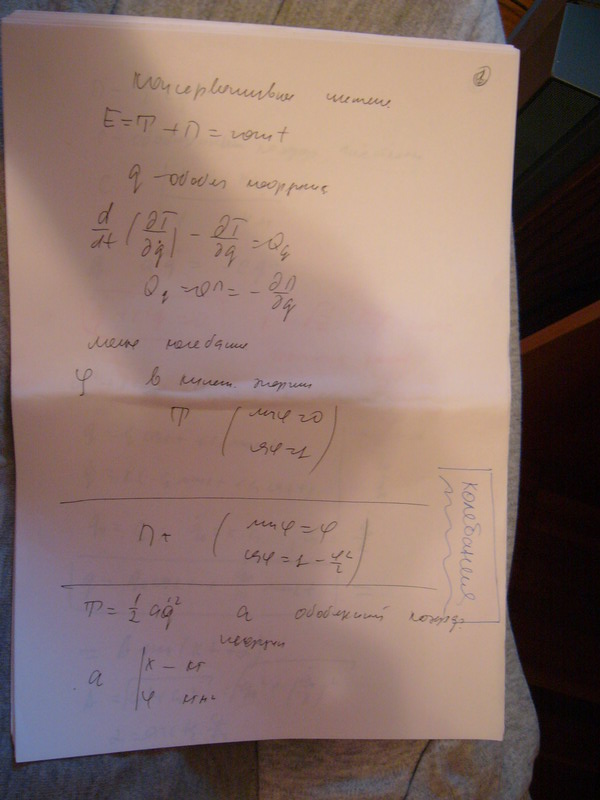 2
Консервативные системы
E = T + П = const
q - обобщ координата
d/dt (∂T/∂q̇) - ∂T/∂q = Q_q
Q_q = Q_П = - ∂П/∂q
малые колебания
φ в кинет. энергии
T ( sinφ = 0
cosφ = 1 )
П ( sinφ = φ
cosφ = 1 - φ²/2 )
колебания
T = 1/2 a q̇² a обобщенный коэфф
инерции
a | x - кг
φ кгм²